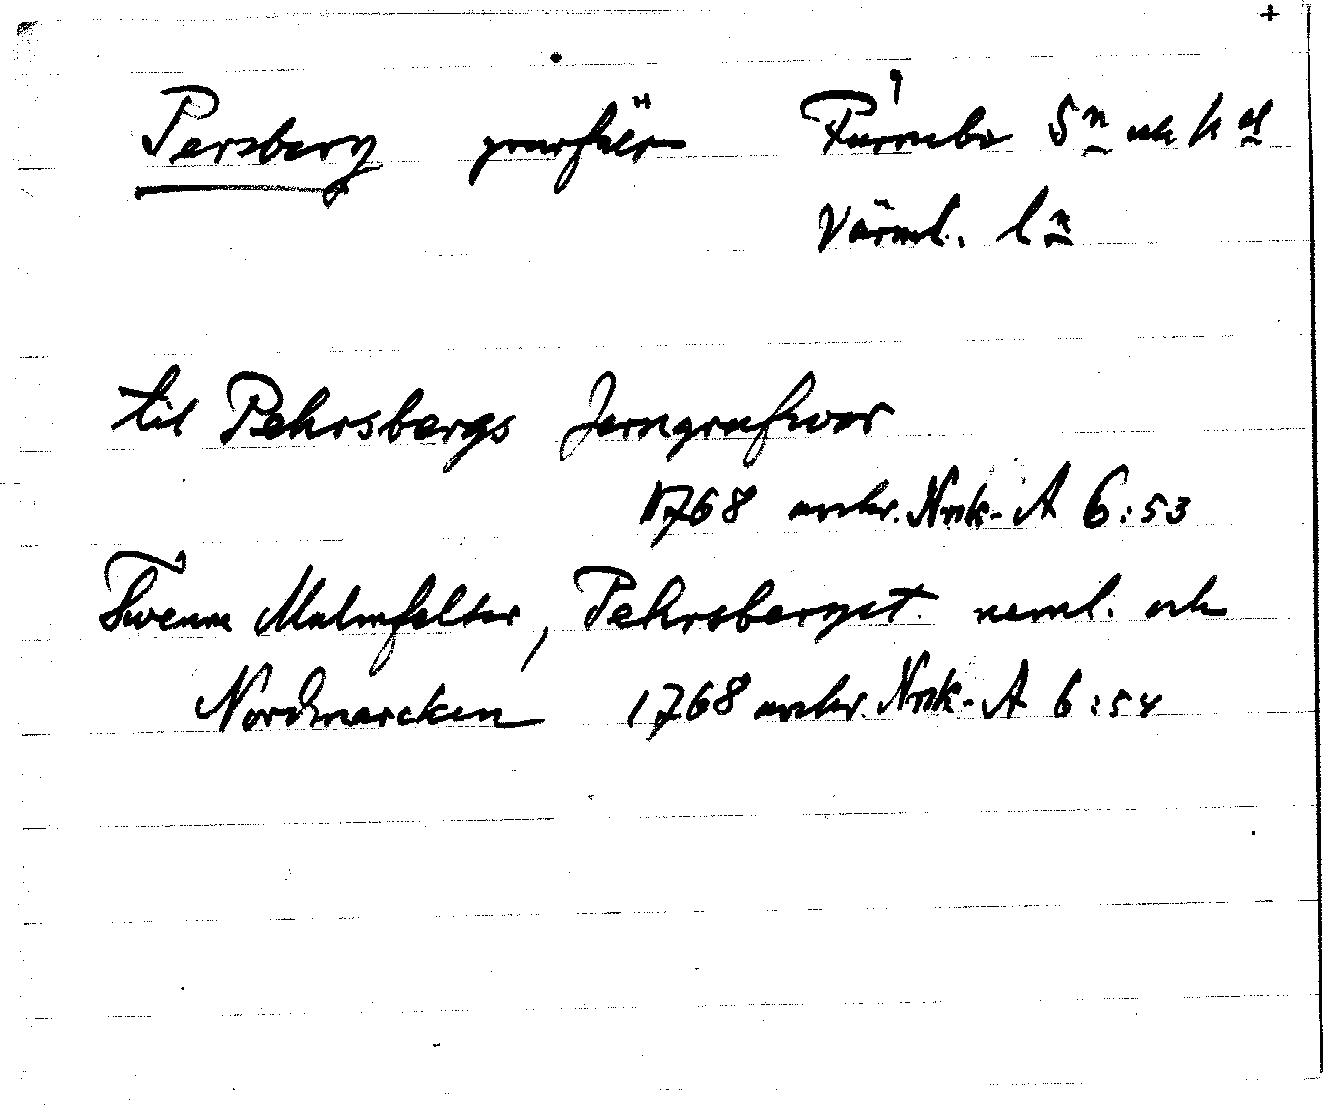 Persberg gruvfält Färnebo Sn och hd
Värml. ln
til Pehrsbergs Jerngrufwor
1768 avskr. Nnk-A 6:53
Twenne Malmfelter, Pehrsberget neml. och
Nordmarcken 1768 avskr. Nnk-A 6:54